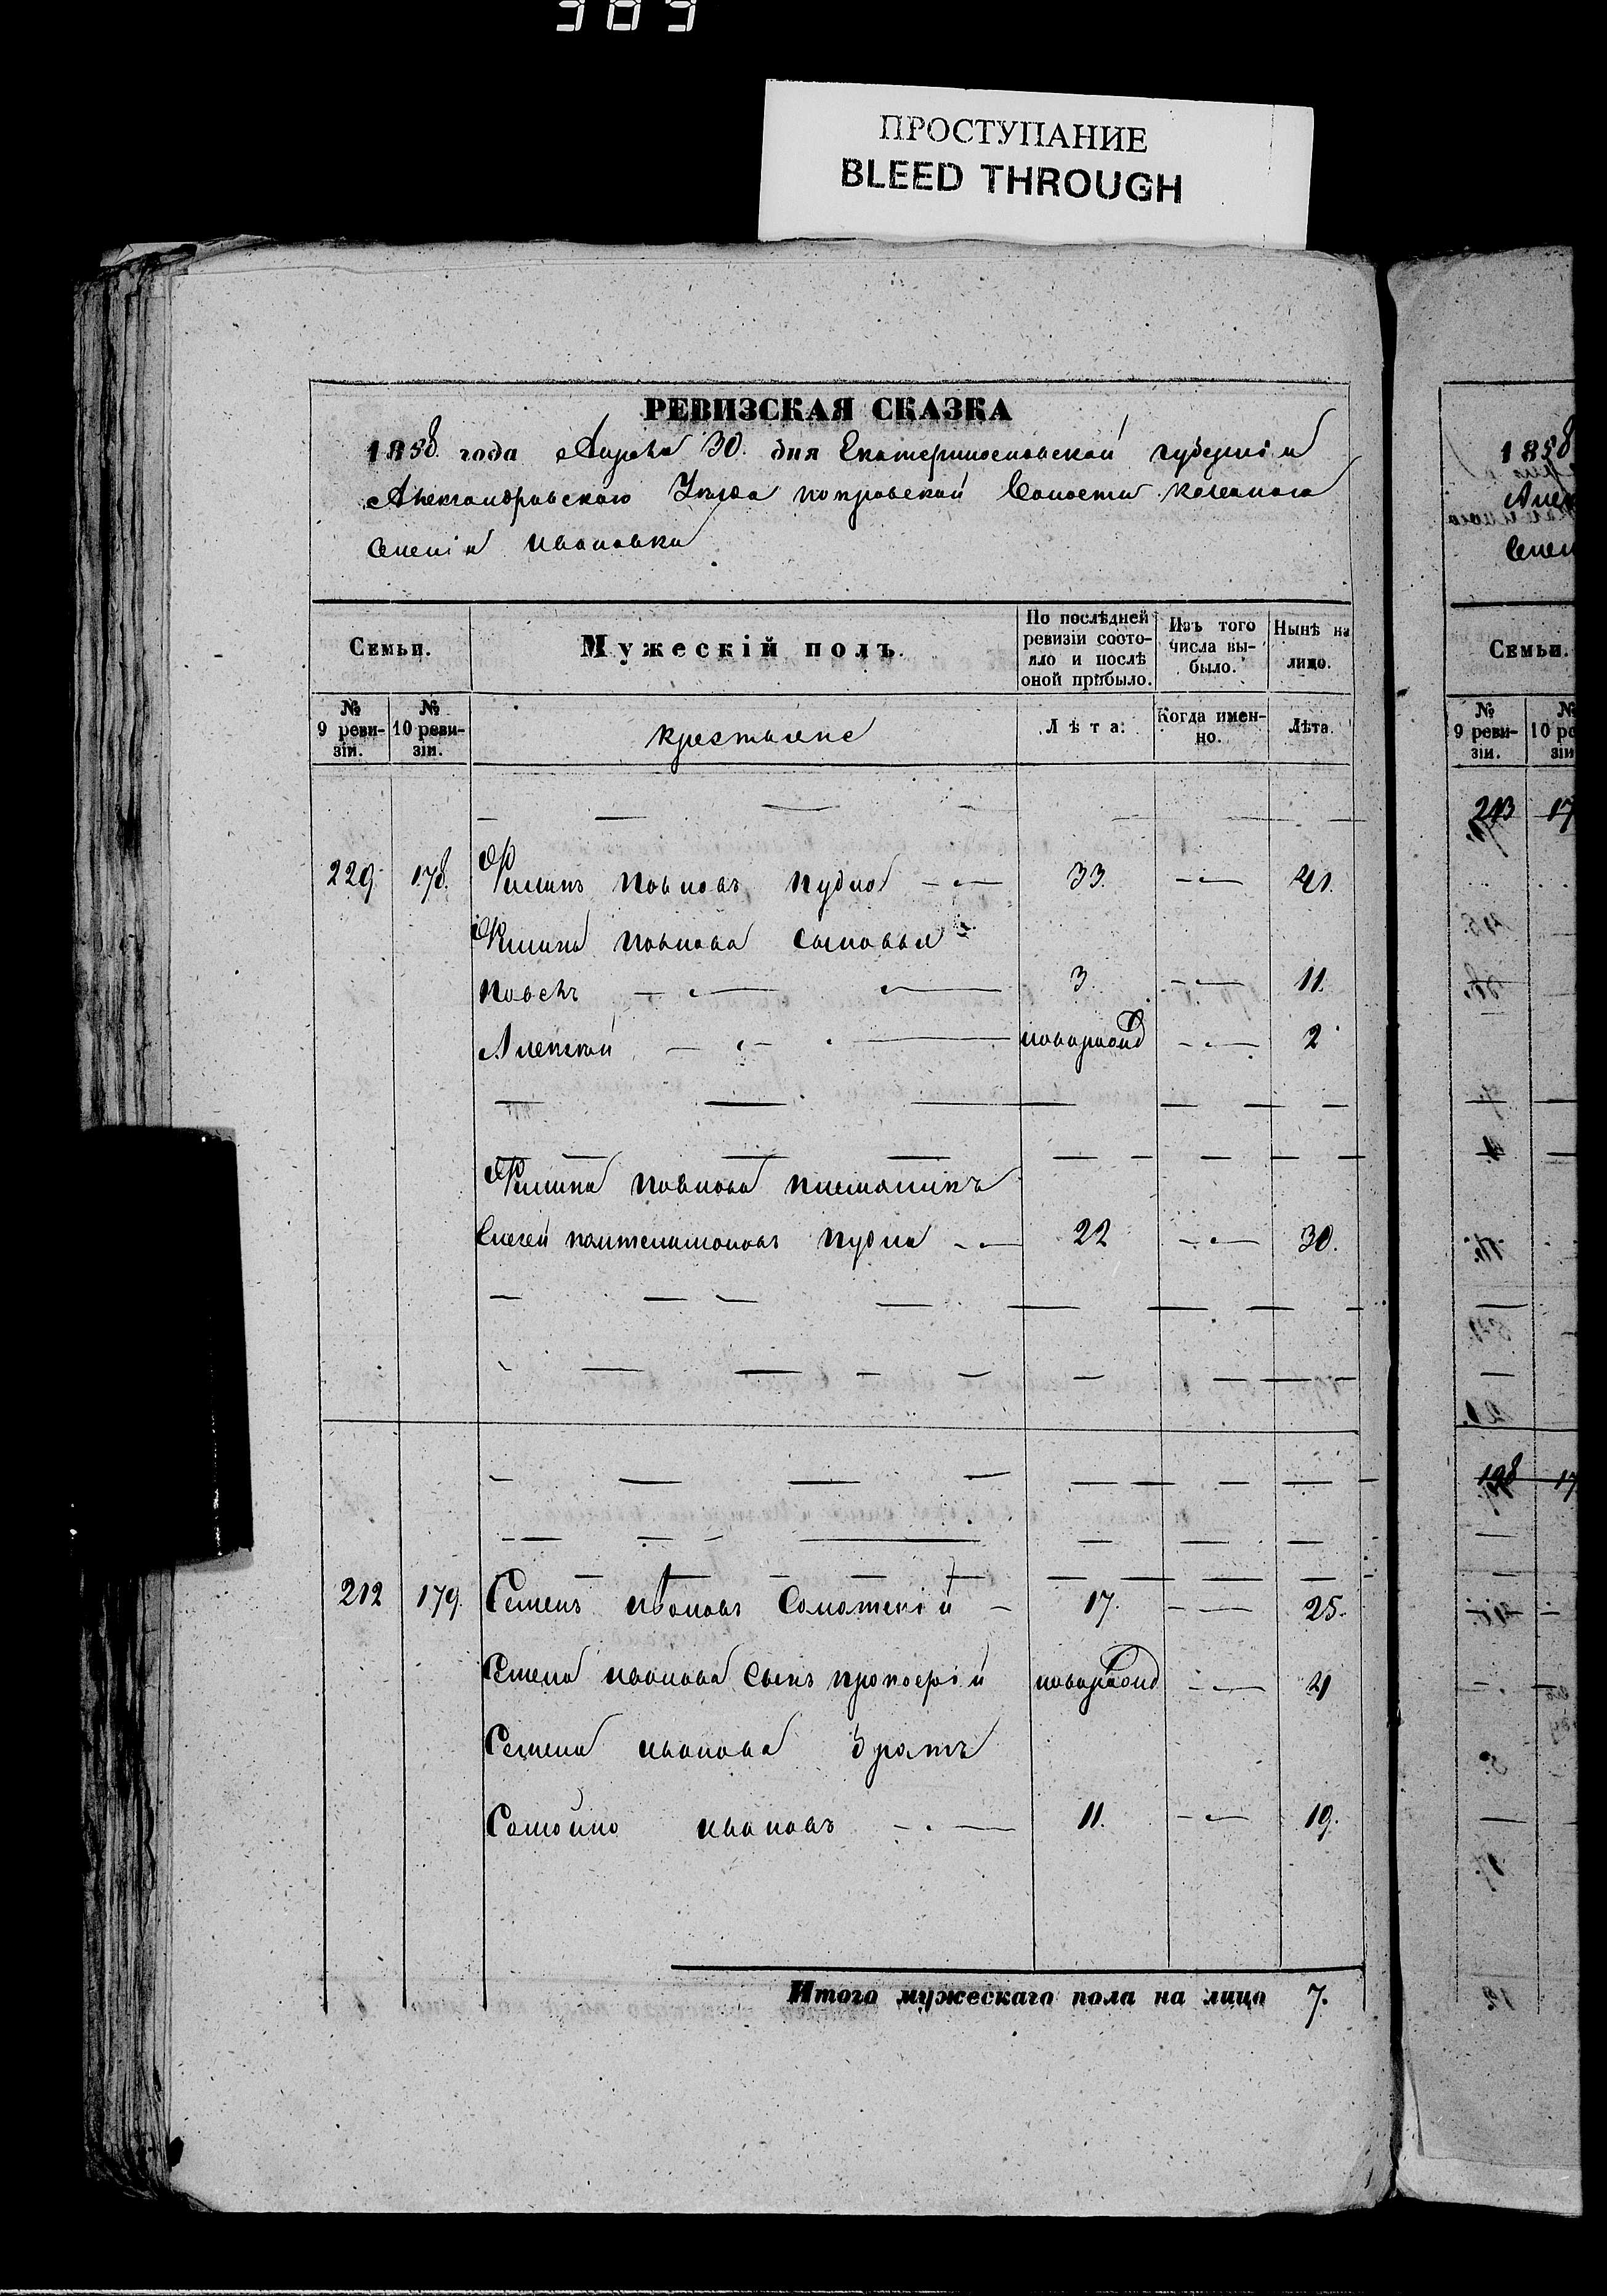 389
ПРОСТУПАНИЕ
BLEED THROUGH
РЕВИЗСКАЯ СКАЗКА
1858 года Апреля 30. дня Екатеринославской губернiи
Александровского Уезда покровской Волости казеннаго
Селенiя Ивановки
Семьи. Мужескій полъ. По послѣдней ревизіи состояло и послѣ оной прибыло. Изъ того числа выбыло. Нынѣ на лицо.
№ 9 ревизіи. № 10 ревизіи. крестьяне Лѣта: Когда именно. Лѣта.
229 178. Филипъ Павловъ Пудла 33. 41.
Филипа Павлова Сыновья
Павелъ 3. 11.
Алексей новорожд 2
Филипа Павлова племяникъ
Елисей пантелимоновъ Пудла 22 30.
212 179. Семенъ Ивановъ 17. 25.
Семена Иванова Сынъ прокофiй новорожд 4
Семена Иванова Братъ
Самойло Ивановъ 11. 19.
Итого мужескаго пола на лицо 7.
1858
Семьи.
№ 9 ревизіи.
213 17
198 17